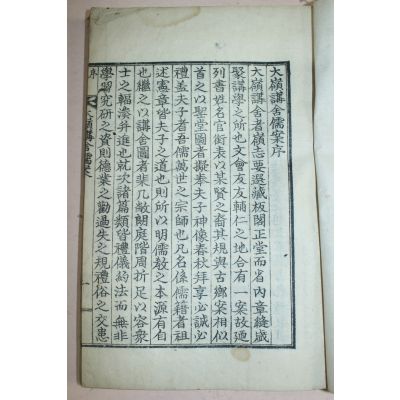 大嶺講舍儒案序
大嶺講舍者嶺志要選藏板閣正堂而省內章縫歲
聚講學之所也文會友友輔仁之地合有一案故迺
列書姓名官銜表以某賢之裔其規與古鄕案相似
首之以聖堂圖者擬奉夫子神像春秋拜享必誠必
禮盖夫子者吾儒萬世之宗師也凡名係儒籍者祖
述憲章皆夫子之道也則所以明儒敎之本源有自
也繼之以講舍圖者棐几敞朗庭階周折足以容衆
士之輻湊并進也就次諸篇類皆禮儀約法而無非
學習究研之資則德業之勸過失之規禮俗之交患
大嶺講舍儒案
序
一